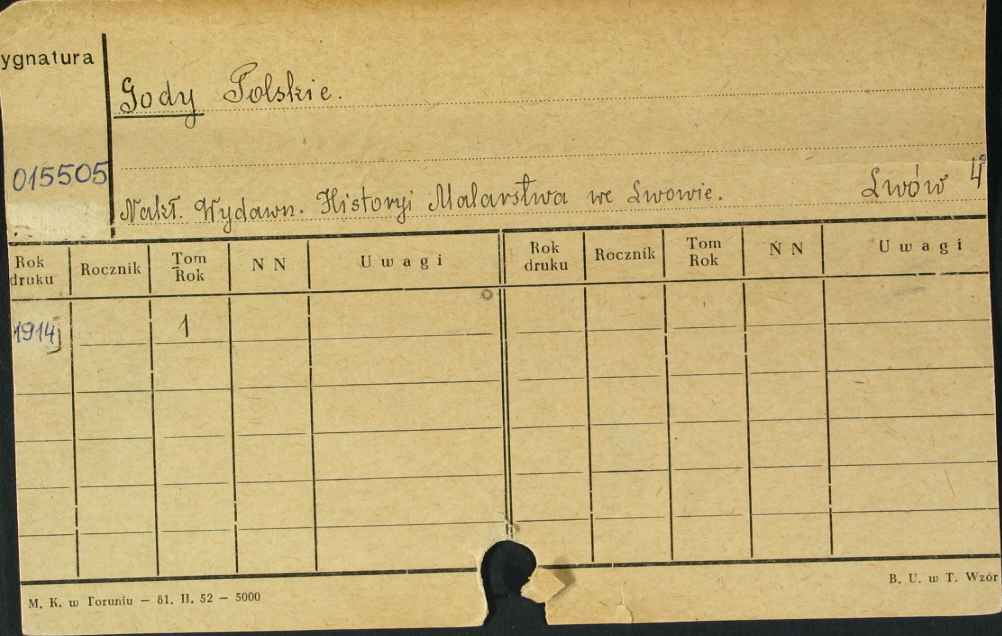 ygnatura
Gody Polskie.
015505
Nakł. Wydawn. Historyi Malarstwa we Lwowie. Lwów 4°
Rok druku Rocznik Tom Rok N N Uwagi Rok druku Rocznik Tom Rok N N Uwagi
1914 1
M. K. w Toruniu — 81. II. 52 — 5000
B. U. w T. Wzór